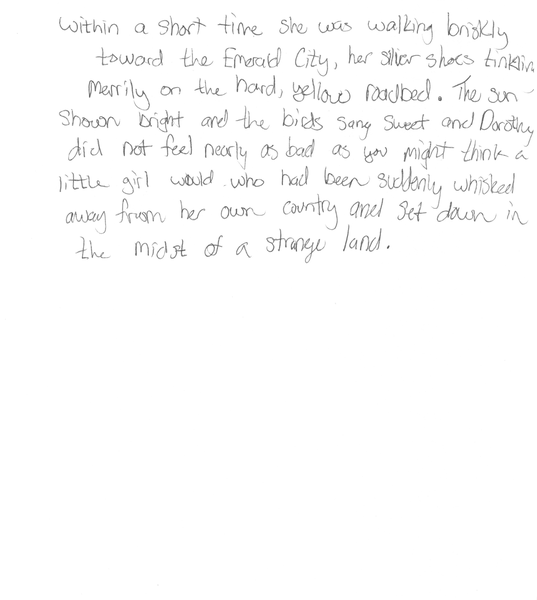 Within a short time she was walking briskly
toward the Emerald City, her silver shoes tinklin
Merrily on the hard, yellow roadbed. The sun
Shown bright and the birds sang sweet and Dorothy
did not feel nearly as bad as you might think a
little girl would who had been suddenly whisked
away from her own country and set down in
the midst of a strange land.